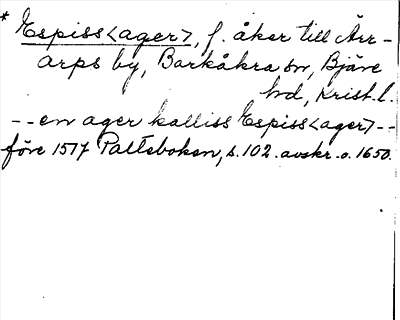 * Espiss<ager>, f. åker till Ärr-
arps by, Barkåkra sn, Bjäre
hd, Krist. l.
-- en ager kalliss Espiss<ager> --
före 1517 Palteboken, s. 102. avskr. o. 1650.